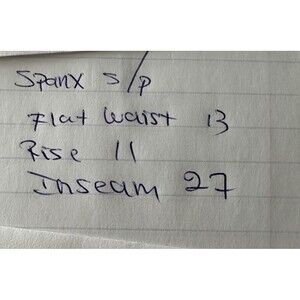 Spanx s/p
Flat Waist 13
Rise 11
Inseam 27